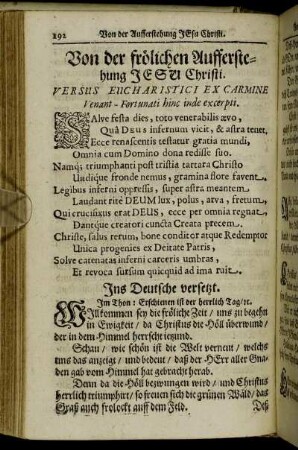 192 Von der Aufferstehung JEsu Christi.
Von der frölichen Aufferste-
hung JESU Christi.
VERSUS EUCHARISTICI EX CARMINE
Venant-Fortunati hinc inde excerpti.
SAlve festa dies, toto venerabilis ævo,
Quâ DEus infernum vicit, & astra tenet,
Ecce renascentis testatur gratia mundi,
Omnia cum Domino dona redisse suo.
Namq; triumphanti post tristia tartara Christo
Undique fronde nemus, gramina flore favent.
Legibus inferni oppressis, super astra meantem
Laudant ritè DEUM lux, polus, arva, fretum,
Qui crucifixus erat DEUS, ecce per omnia regnat,
Dantque creatori cuncta Creata precem.
Christe, salus rerum, bone conditor atque Redemptor
Unica progenies ex Deitate Patris,
Solve catenatas inferni carceris umbras,
Et revoca sursum quicquid ad ima ruit.
Ins Deutsche versetzt.
Im Thon: Erschienen ist der herrlich Tag/ ꝛc.
WIllkommen sey die fröliche Zeit / uns zu begehn
in Ewigkeit / da Christus die Höll überwund /
der in dem Himmel herrscht jetzund.
Schau / wie schön ist die Welt verneut / welchs
uns das anzeigt / und bedeut / daß der HErr aller Gna-
den gab vom Himmel hat gebracht herab.
Denn da die Höll bezwungen wird / und Christus
herrlich triumphirt / so freuen sich die grünen Wäld / das
Graß auch frolockt auff dem Feld.
Deß